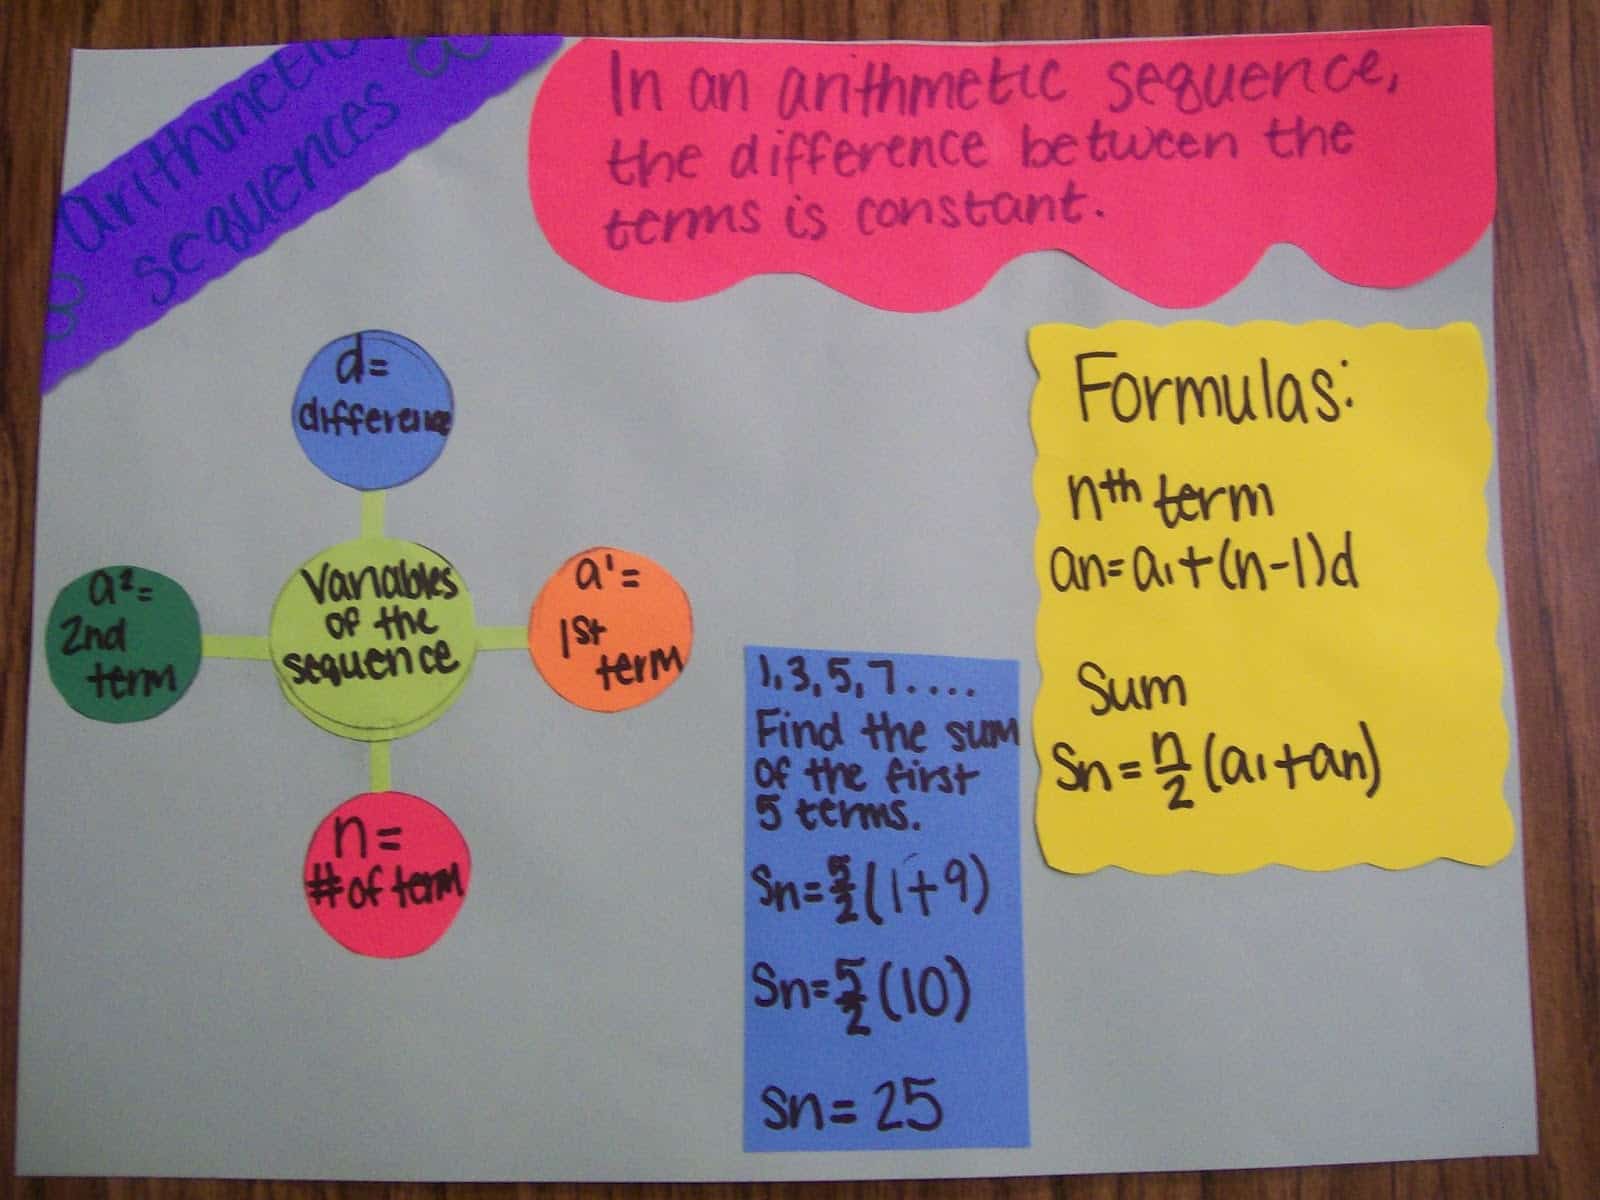 arithmetic
sequences
In an arithmetic sequence,
the difference between the
terms is constant.
d=
difference
a²=
2nd
term
Variables
of the
sequence
a¹=
1st
term
n=
#of term
1,3,5,7....
Find the sum
of the first
5 terms.
Sn=5/2(1+9)
Sn=5/2(10)
Sn=25
Formulas:
nth term
an=a₁+(n-1)d
Sum
Sn=n/2(a₁+an)